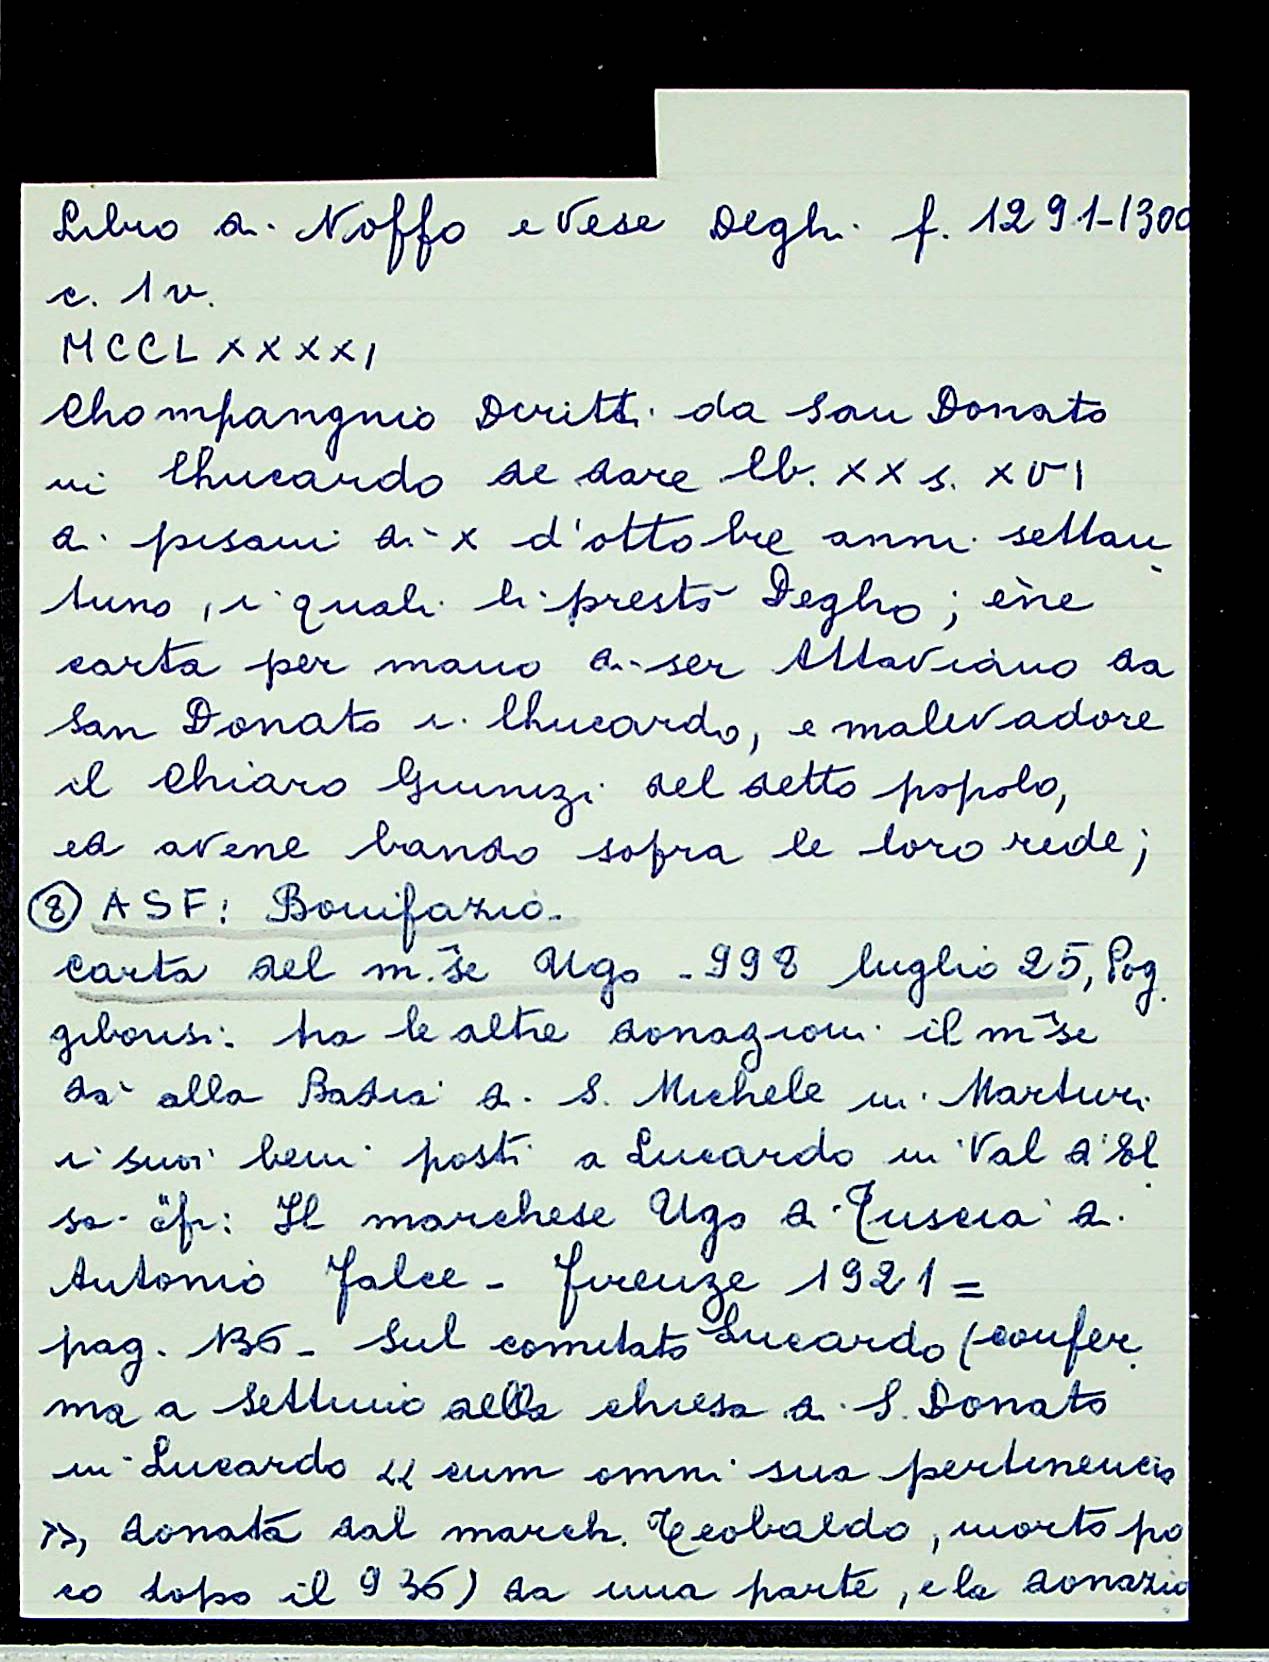 Libro di Noffo e Vese Degh. f. 1291-1300
c. 1 v.
MCCLXXXXI
Chompangnio Diritti da San Donato
in Chucardo de dare lb. XX s. XVI
di pisani dì X d'ottobre anni settan
tuno, i quali li prestò Degho; ène
carta per mano di ser Attaviano da
San Donato i Lhucardo, e malevadore
il Chiaro Giunizi del detto popolo,
ed avene bando sopra le loro rede;
⑧ ASF: Bonifazio.
carta del m.se Ugo - 998 luglio 25, Pog
gibonsi: tra le altre donagioni il m.se
dà alla Badia di S. Michele in Marturi
i suoi beni posti a Lucardo in Val d'El
sa cfr: Il marchese Ugo di Tuscia di
Antonio Falce - Firenze 1921 =
pag. 136 - Sul comitato Lucardo (confer
ma a Settimo della chiesa di S. Donato
in Lucardo << cum omni sua pertinencia
>>, donata dal march. Teobaldo, morto po
co dopo il 936) da una parte, e la donazio